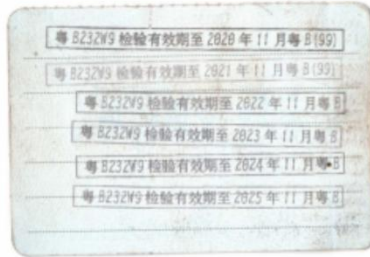 粤 B232W9 检验有效期至 2020 年 11 月粤 B(99)
粤 B232W9 检验有效期至 2021 年 11 月粤 B(99)
粤 B232W9 检验有效期至 2022 年 11 月粤 B
粤 B232W9 检验有效期至 2023 年 11 月粤 B
粤 B232W9 检验有效期至 2024 年 11 月粤 B
粤 B232W9 检验有效期至 2025 年 11 月粤 B